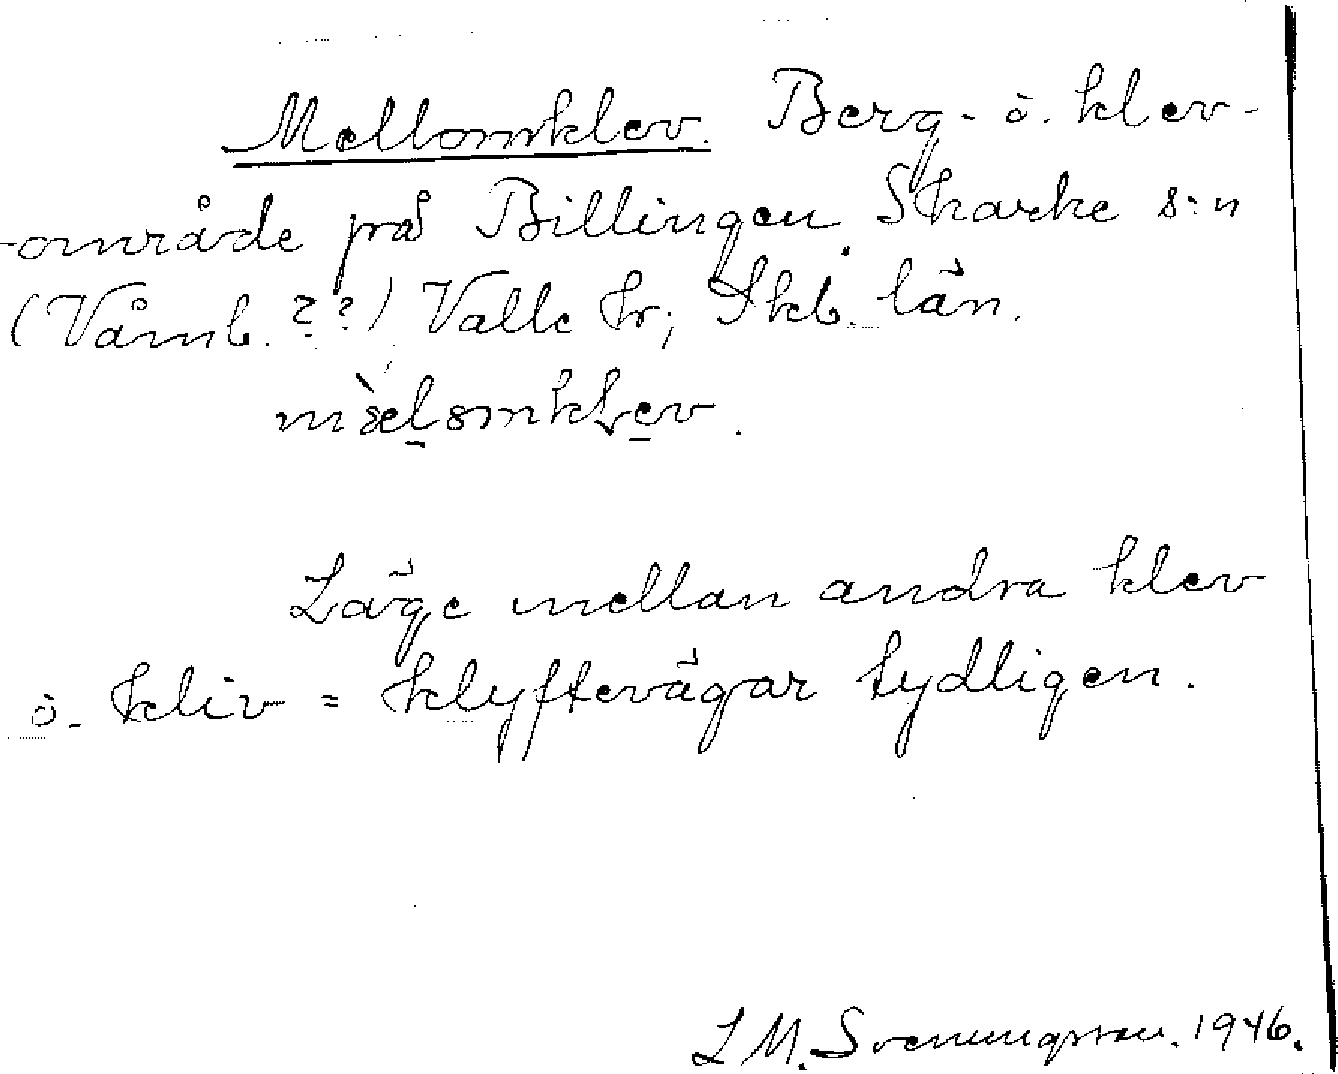 Mellomklev. Berg- ö. klev-
-område på Billingen. Skarke s:n
(Våmb. ??) Valle hr; Skb. län.
mèlomklev.
Läge mellan andra klev
ö. kliv = klyftevägar tydligen.
L M. Svenungsson. 1946.